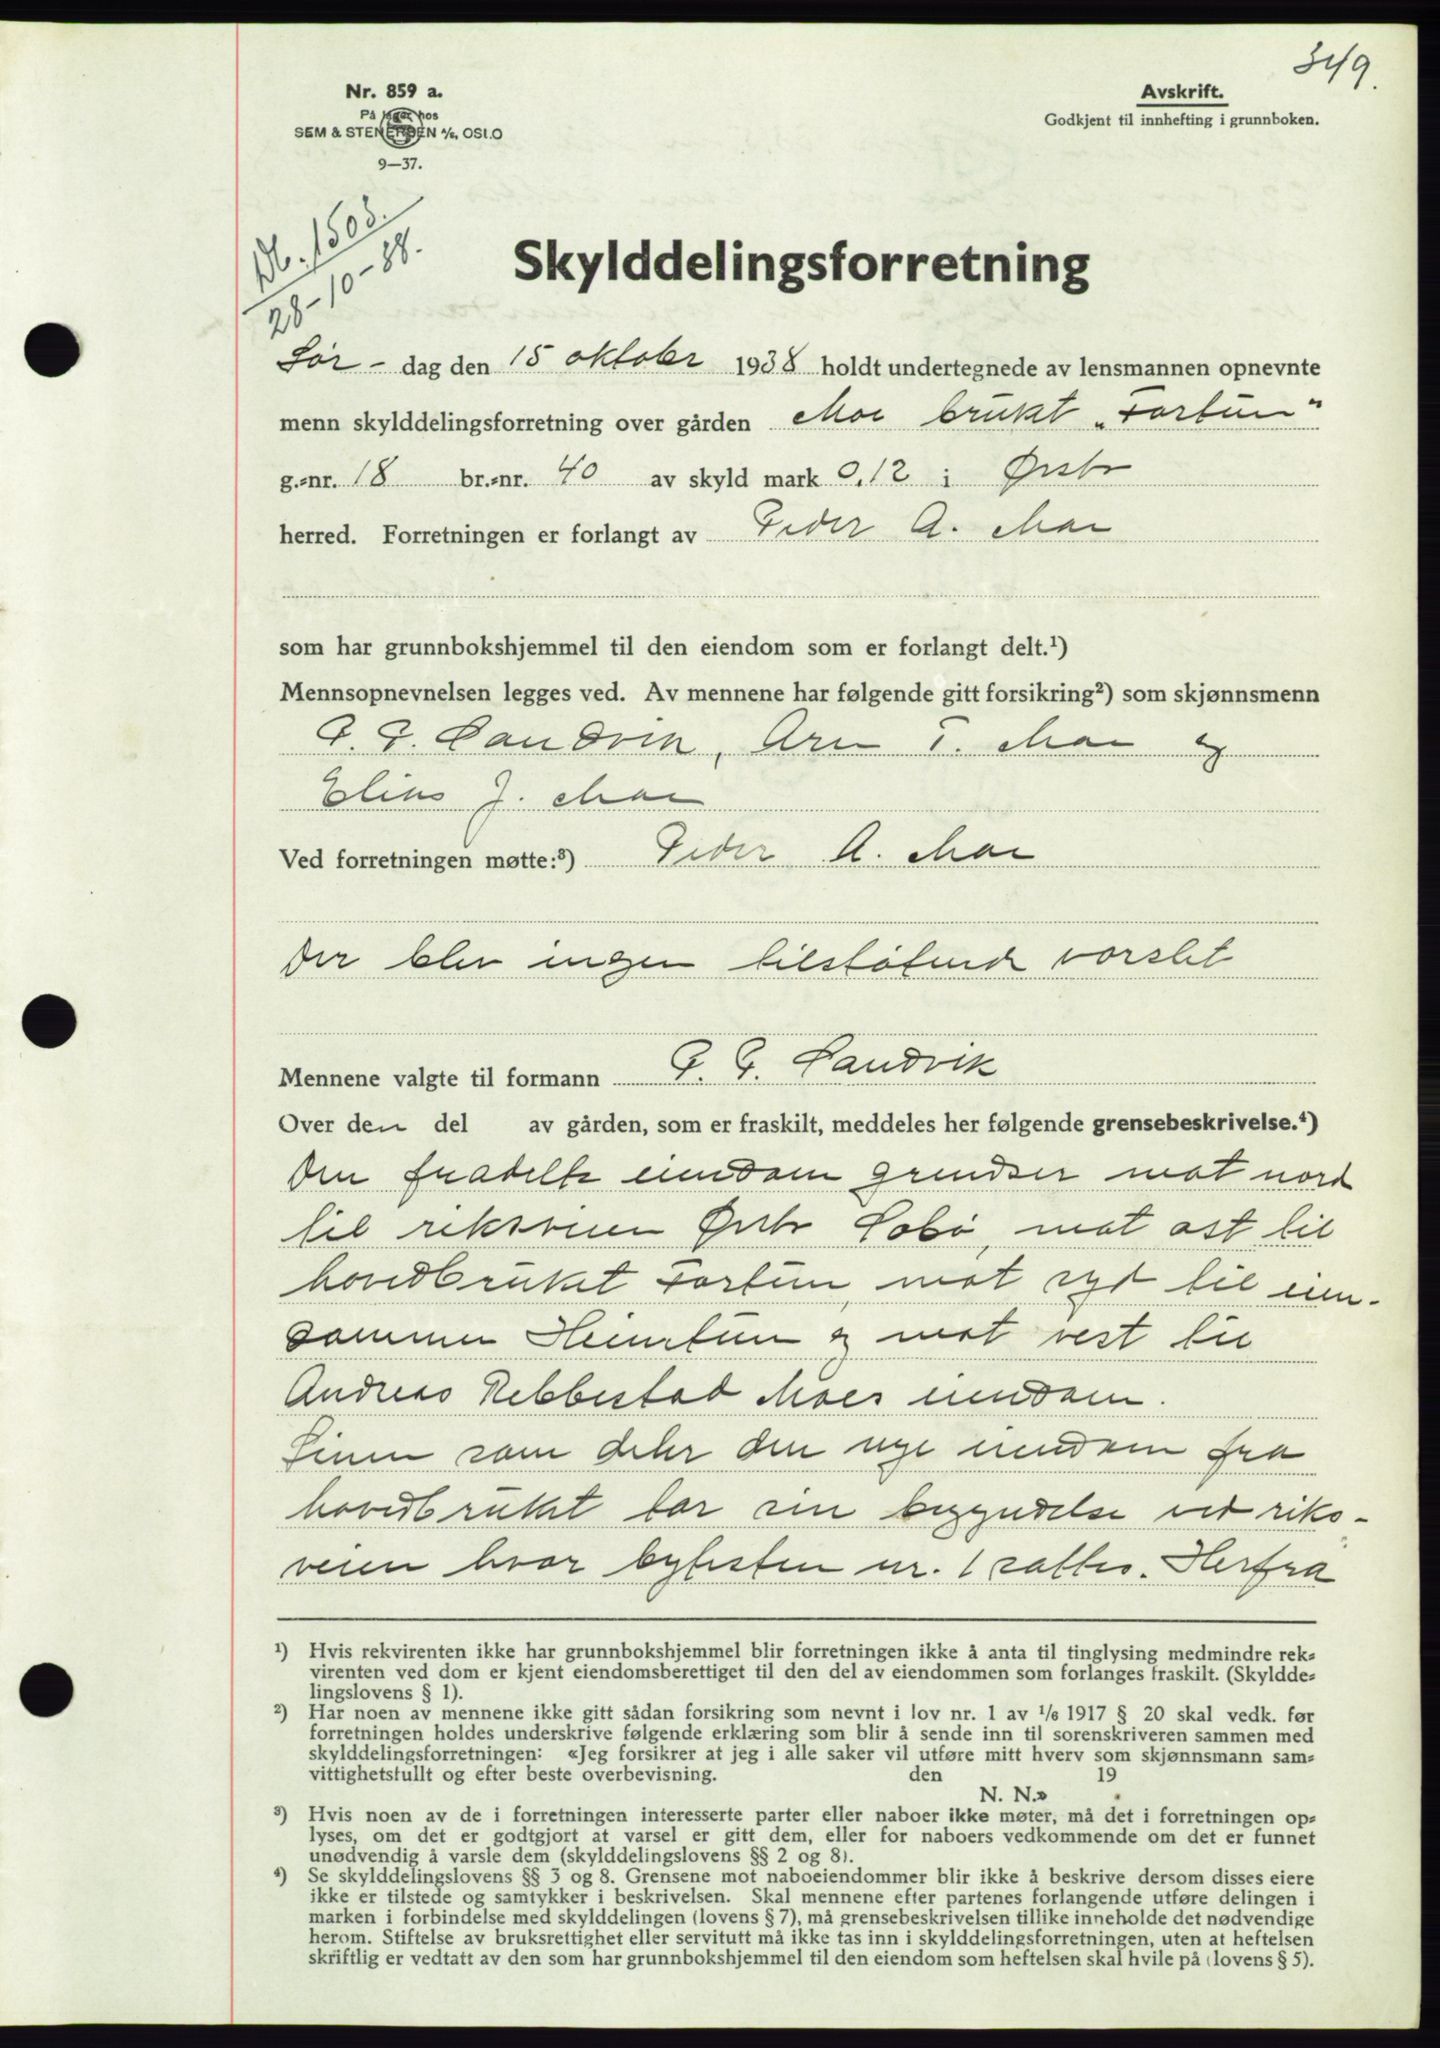 349.
Nr. 859 a.
På lager hos
SEM & STENERSEN A/S, OSLO
9—37.
Avskrift.
Godkjent til innhefting i grunnboken.
Db. 1503.
28-10-38.
Skylddelingsforretning
Lør- dag den 15 oktober 1938 holdt undertegnede av lensmannen opnevnte
menn skylddelingsforretning over gården Moe brukt „Fortun"
g.=nr. 18 br.=nr. 40 av skyld mark 0,12 i Ørsta
herred. Forretningen er forlangt av Peder A. Moe
som har grunnbokshjemmel til den eiendom som er forlangt delt.¹)
Mennsopnevnelsen legges ved. Av mennene har følgende gitt forsikring²) som skjønnsmenn
P. P. Sandvik, Arn T. Moe og
Elias J. Moe
Ved forretningen møtte:³) Peder A. Moe
Der blev ingen tilstøtende varslet
Mennene valgte til formann P. P. Sandvik
Over den del av gården, som er fraskilt, meddeles her følgende grensebeskrivelse.⁴)
Den fradelte eiendom grendser mot nord
til riksveien Ørsta Sæbø, mot ost til
hovedbruket Fortun, mot syd til eien-
dommen Heimtun og mot vest til
Andreas Rebbestad Moes eiendom.
Linen som deler den nye eiendom fra
hovedbruket tar sin begyndelse ved riks-
veien hvor bytesten nr. 1 sattes. Herfra
¹) Hvis rekvirenten ikke har grunnbokshjemmel blir forretningen ikke å anta til tinglysing medmindre rek=
virenten ved dom er kjent eiendomsberettiget til den del av eiendommen som forlanges fraskilt. (Skyldde=
lingslovens § 1).
²) Har noen av mennene ikke gitt sådan forsikring som nevnt i lov nr. 1 av 1/6 1917 § 20 skal vedk. før
forretningen holdes underskrive følgende erklæring som blir å sende inn til sorenskriveren sammen med
skylddelingsforretningen: «Jeg forsikrer at jeg i alle saker vil utføre mitt hverv som skjønnsmann sam=
vittighetsfullt og efter beste overbevisning. den 19
N. N.»
³) Hvis noen av de i forretningen interesserte parter eller naboer ikke møter, må det i forretningen op=
lyses, om det er godtgjort at varsel er gitt dem, eller for naboers vedkommende om det er funnet
unødvendig å varsle dem (skylddelingslovens §§ 2 og 8).
⁴) Se skylddelingslovens §§ 3 og 8. Grensene mot naboeiendommer blir ikke å beskrive dersom disses eiere
ikke er tilstede og samtykker i beskrivelsen. Skal mennene efter partenes forlangende utføre delingen i
marken i forbindelse med skylddelingen (lovens § 7), må grensebeskrivelsen tillike inneholde det nødvendige
herom. Stiftelse av bruksrettighet eller servitutt må ikke tas inn i skylddelingsforretningen, uten at heftelsen
skriftlig er vedtatt av den som har grunnbokshjemmel til den eiendom som heftelsen skal hvile på (lovens § 5).